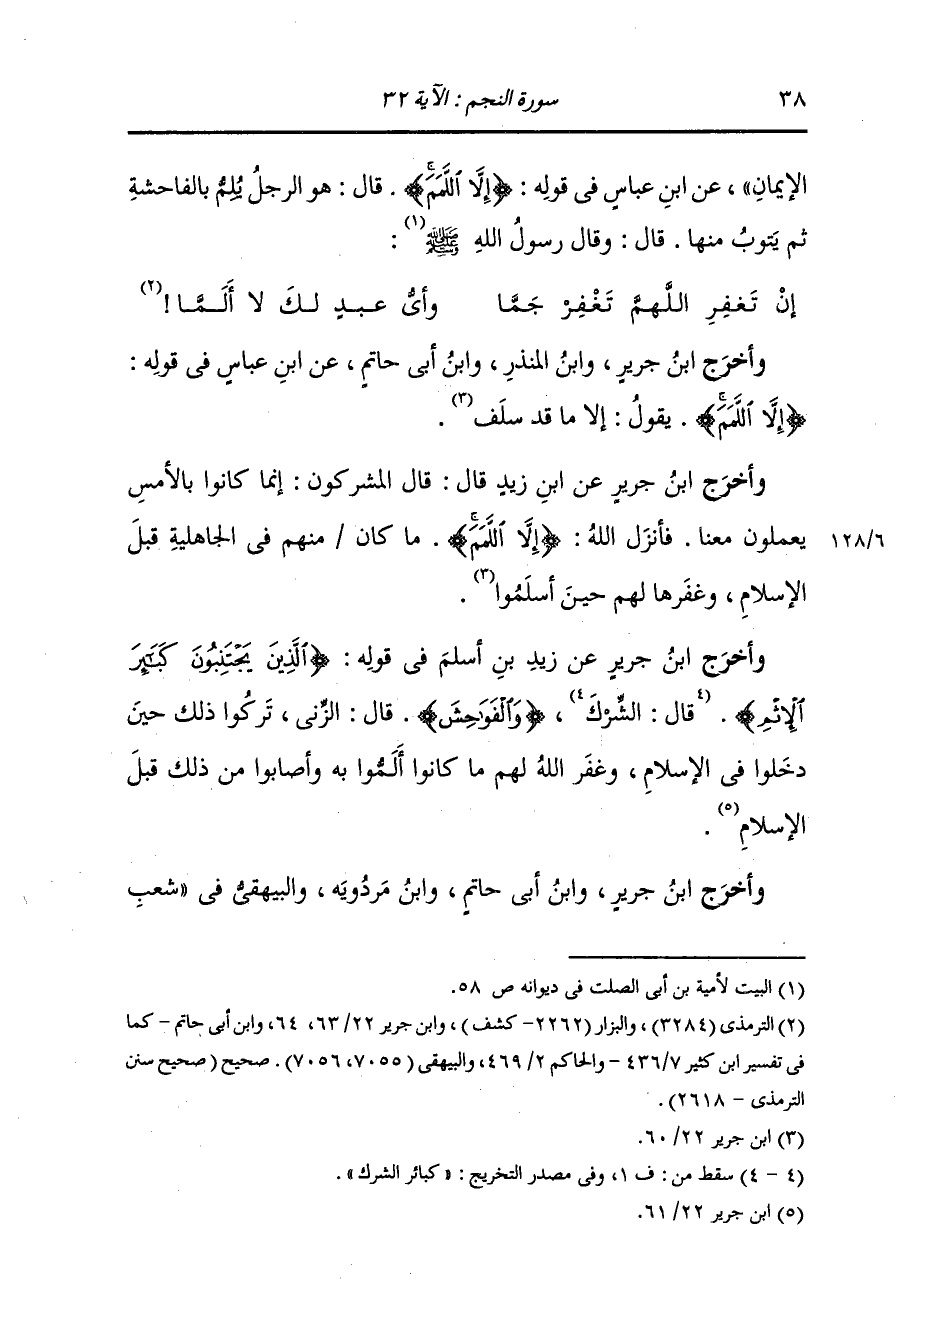 ٣٨ سورة النجم : الآية ٣٢
الإيمانِ» ، عن ابنِ عباسٍ فى قولِه : ﴿إِلَّا ٱللَّمَمَۚ﴾ . قال : هو الرجلُ يُلِمُّ بالفاحشةِ
ثم يَتوبُ منها . قال : وقال رسولُ اللهِ ﷺ(١) :
إنْ تَغفِرِ اللَّهمَّ تَغْفِرْ جَمَّا وأىُّ عبدٍ لكَ لا أَلَمَّا !(٢)
وأخرَج ابنُ جريرٍ ، وابنُ المنذرِ ، وابنُ أبى حاتمٍ ، عن ابنِ عباسٍ فى قولِه :
﴿إِلَّا ٱللَّمَمَۚ﴾ . يقولُ : إلا ما قد سلَف(٣) .
وأخرَج ابنُ جريرٍ عن ابنِ زيدٍ قال : قال المشركون : إنما كانوا بالأمسِ
١٢٨/٦ يعملون معنا . فأنزَل اللهُ : ﴿إِلَّا ٱللَّمَمَۚ﴾ . ما كان / منهم فى الجاهليةِ قبلَ
الإسلامِ ، وغفَرها لهم حينَ أسلَمُوا(٣) .
وأخرَج ابنُ جريرٍ عن زيدِ بنِ أسلمَ فى قولِه : ﴿ٱلَّذِينَ يَجْتَنِبُونَ كَبَٰٓئِرَ
ٱلْإِثْمِ﴾ . (٤قال : الشِّرْكَ٤) ، ﴿وَٱلْفَوَٰحِشَ﴾ . قال : الزِّنى ، تَركُوا ذلك حينَ
دخَلوا فى الإسلامِ ، وغفَر اللهُ لهم ما كانوا أَلَمُّوا به وأصابوا من ذلك قبلَ
الإسلامِ(٥) .
وأخرَج ابنُ جريرٍ ، وابنُ أبى حاتمٍ ، وابنُ مَردُويَه ، والبيهقىُّ فى «شعبِ
(١) البيت لأمية بن أبى الصلت فى ديوانه ص ٥٨.
(٢) الترمذى (٣٢٨٤) ، والبزار (٢٢٦٢- كشف) ، وابن جرير ٦٣/٢٢، ٦٤، وابن أبى حاتم - كما
فى تفسير ابن كثير ٤٣٦/٧ - والحاكم ٤٦٩/٢، والبيهقى (٧٠٥٥، ٧٠٥٦) . صحيح (صحيح سنن
الترمذى - ٢٦١٨).
(٣) ابن جرير ٦٠/٢٢.
(٤ - ٤) سقط من : ف ١، وفى مصدر التخريج : «كبائر الشرك» .
(٥) ابن جرير ٦١/٢٢.